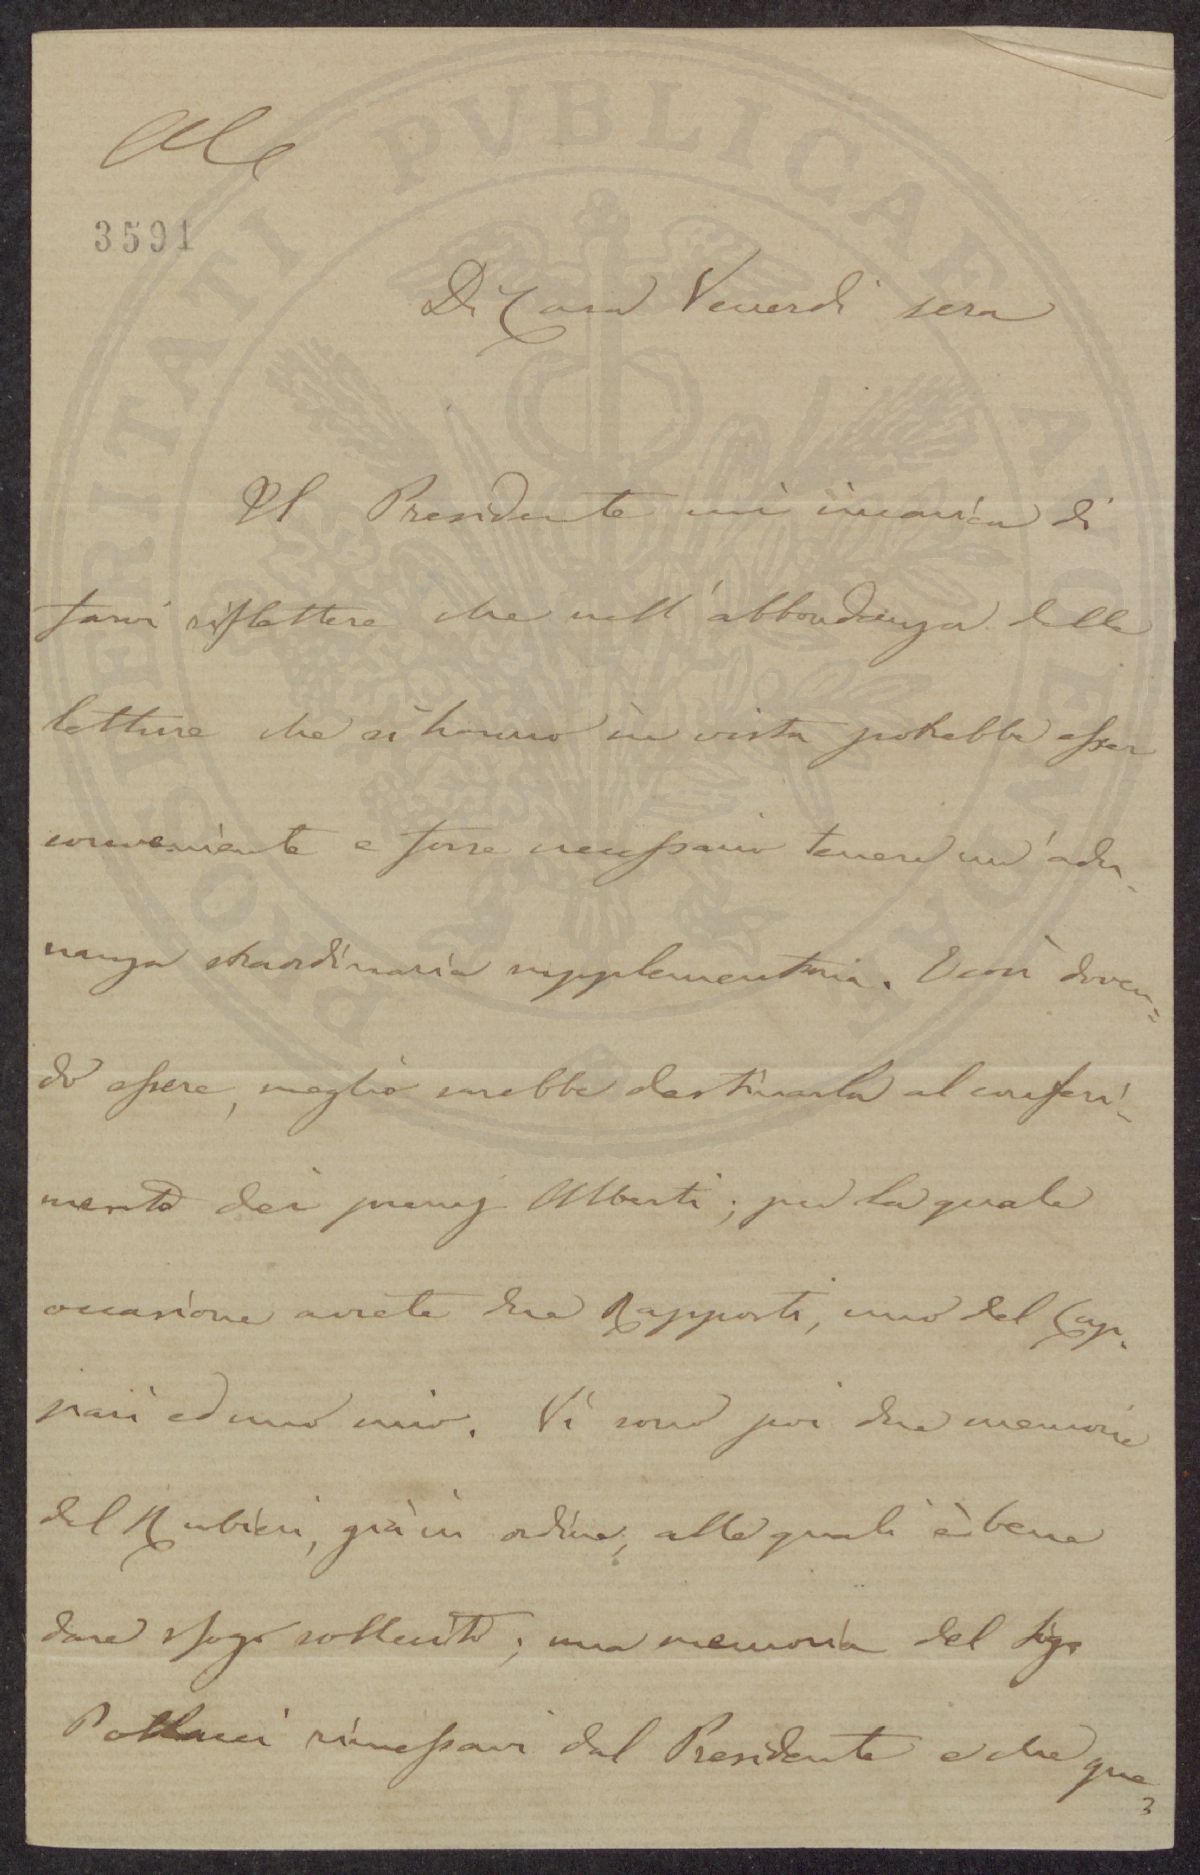 3591
Di Casa Venerdì sera
Il Presidente mi incarica di
farvi riflettere che nell'abbondanza delle
letture che si hanno in vista potrebbe esser
conveniente e forse necessario tenere un'adu-
nanza straordinaria supplementaria. E così doven=
do essere, meglio sarebbe destinarla al conferi-
mento dei premj Alberti; per la quale
occasione avrete due Rapporti, uno del Cap-
pari ed uno mio. Vi sono poi due memorie
del Rubieri, già in ordine, alle quali è bene
dare sfogo sollecito; una memoria del Sigr
Pollacci rimessavi dal Presidente e che que=
PROSPERITATI PVBLICAE AVGENDAE